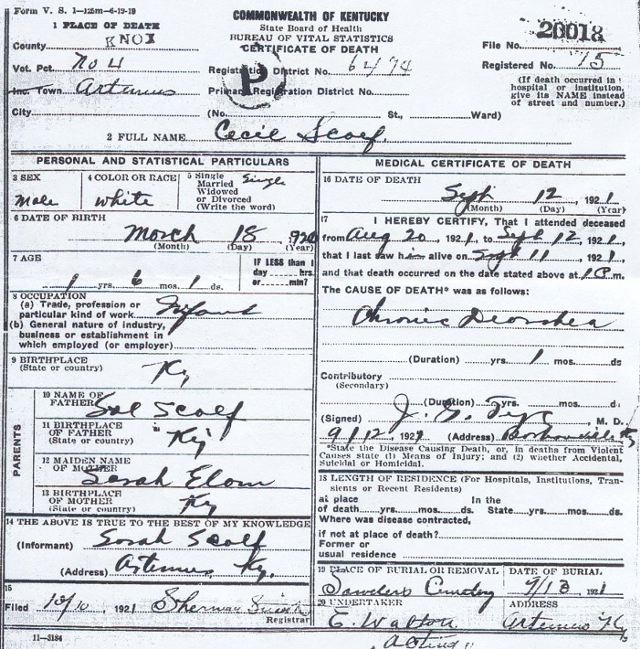 Form V. S. 1—125m—6-19-19
1 PLACE OF DEATH
COMMONWEALTH OF KENTUCKY
State Board of Health
BUREAU OF VITAL STATISTICS
CERTIFICATE OF DEATH
20018
County KNOX
File No.
Vot. Pct. No 4
Registration District No. 6474
Registered No. 15
Inc. Town Artemus
Primary Registration District No.
P
(If death occurred in hospital or institution, give its NAME instead of street and number.)
City (No. St., Ward)
2 FULL NAME Cecil Scalf.
PERSONAL AND STATISTICAL PARTICULARS
3 SEX male
4 COLOR OR RACE white
5 Single Married Widowed or Divorced (Write the word) Single
6 DATE OF BIRTH
March 18 1920
(Month) (Day) (Year)
7 AGE
IF LESS than 1 day hrs. or min?
1 yrs. 6 mos. 1 ds.
8 OCCUPATION
(a) Trade, profession or particular kind of work Infant
(b) General nature of industry, business or establishment in which employed (or employer)
9 BIRTHPLACE
(State or country) Ky
PARENTS
10 NAME OF FATHER Sol Scalf
11 BIRTHPLACE OF FATHER
(State or country) Ky
12 MAIDEN NAME OF MOTHER Sarah Elam
13 BIRTHPLACE OF MOTHER
(State or country) Ky
14 THE ABOVE IS TRUE TO THE BEST OF MY KNOWLEDGE
(Informant) Sarah Scalf
(Address) Artemus Ky.
15
Filed 10/10, 1921 Sherman
Registrar
11—3184
MEDICAL CERTIFICATE OF DEATH
16 DATE OF DEATH
Sept 12, 1921
(Month) (Day) (Year)
17 I HEREBY CERTIFY, That I attended deceased
from Aug 20, 1921, to Sept 12, 1921,
that I last saw him alive on Sept 11, 1921,
and that death occurred on the date stated above at 1 P.m.
The CAUSE OF DEATH* was as follows:
Chronic Deorrhea
(Duration) yrs. 1 mos. ds
Contributory
(Secondary)
(Duration) yrs. mos. d.
(Signed) J. M. D.
9/12, 1921 (Address)
*State the Disease Causing Death, or, in deaths from Violent Causes state (1) Means of Injury; and (2) whether Accidental, Suicidal or Homicidal.
18 LENGTH OF RESIDENCE (For Hospitals, Institutions, Transients or Recent Residents)
at place of death yrs. mos. ds. In the State yrs. mos. ds.
Where was disease contracted,
if not at place of death?
Former or
usual residence
19 PLACE OF BURIAL OR REMOVAL
DATE OF BURIAL
9/13 1921
20 UNDERTAKER
ADDRESS
E. Watson Artemus Ky
Acting